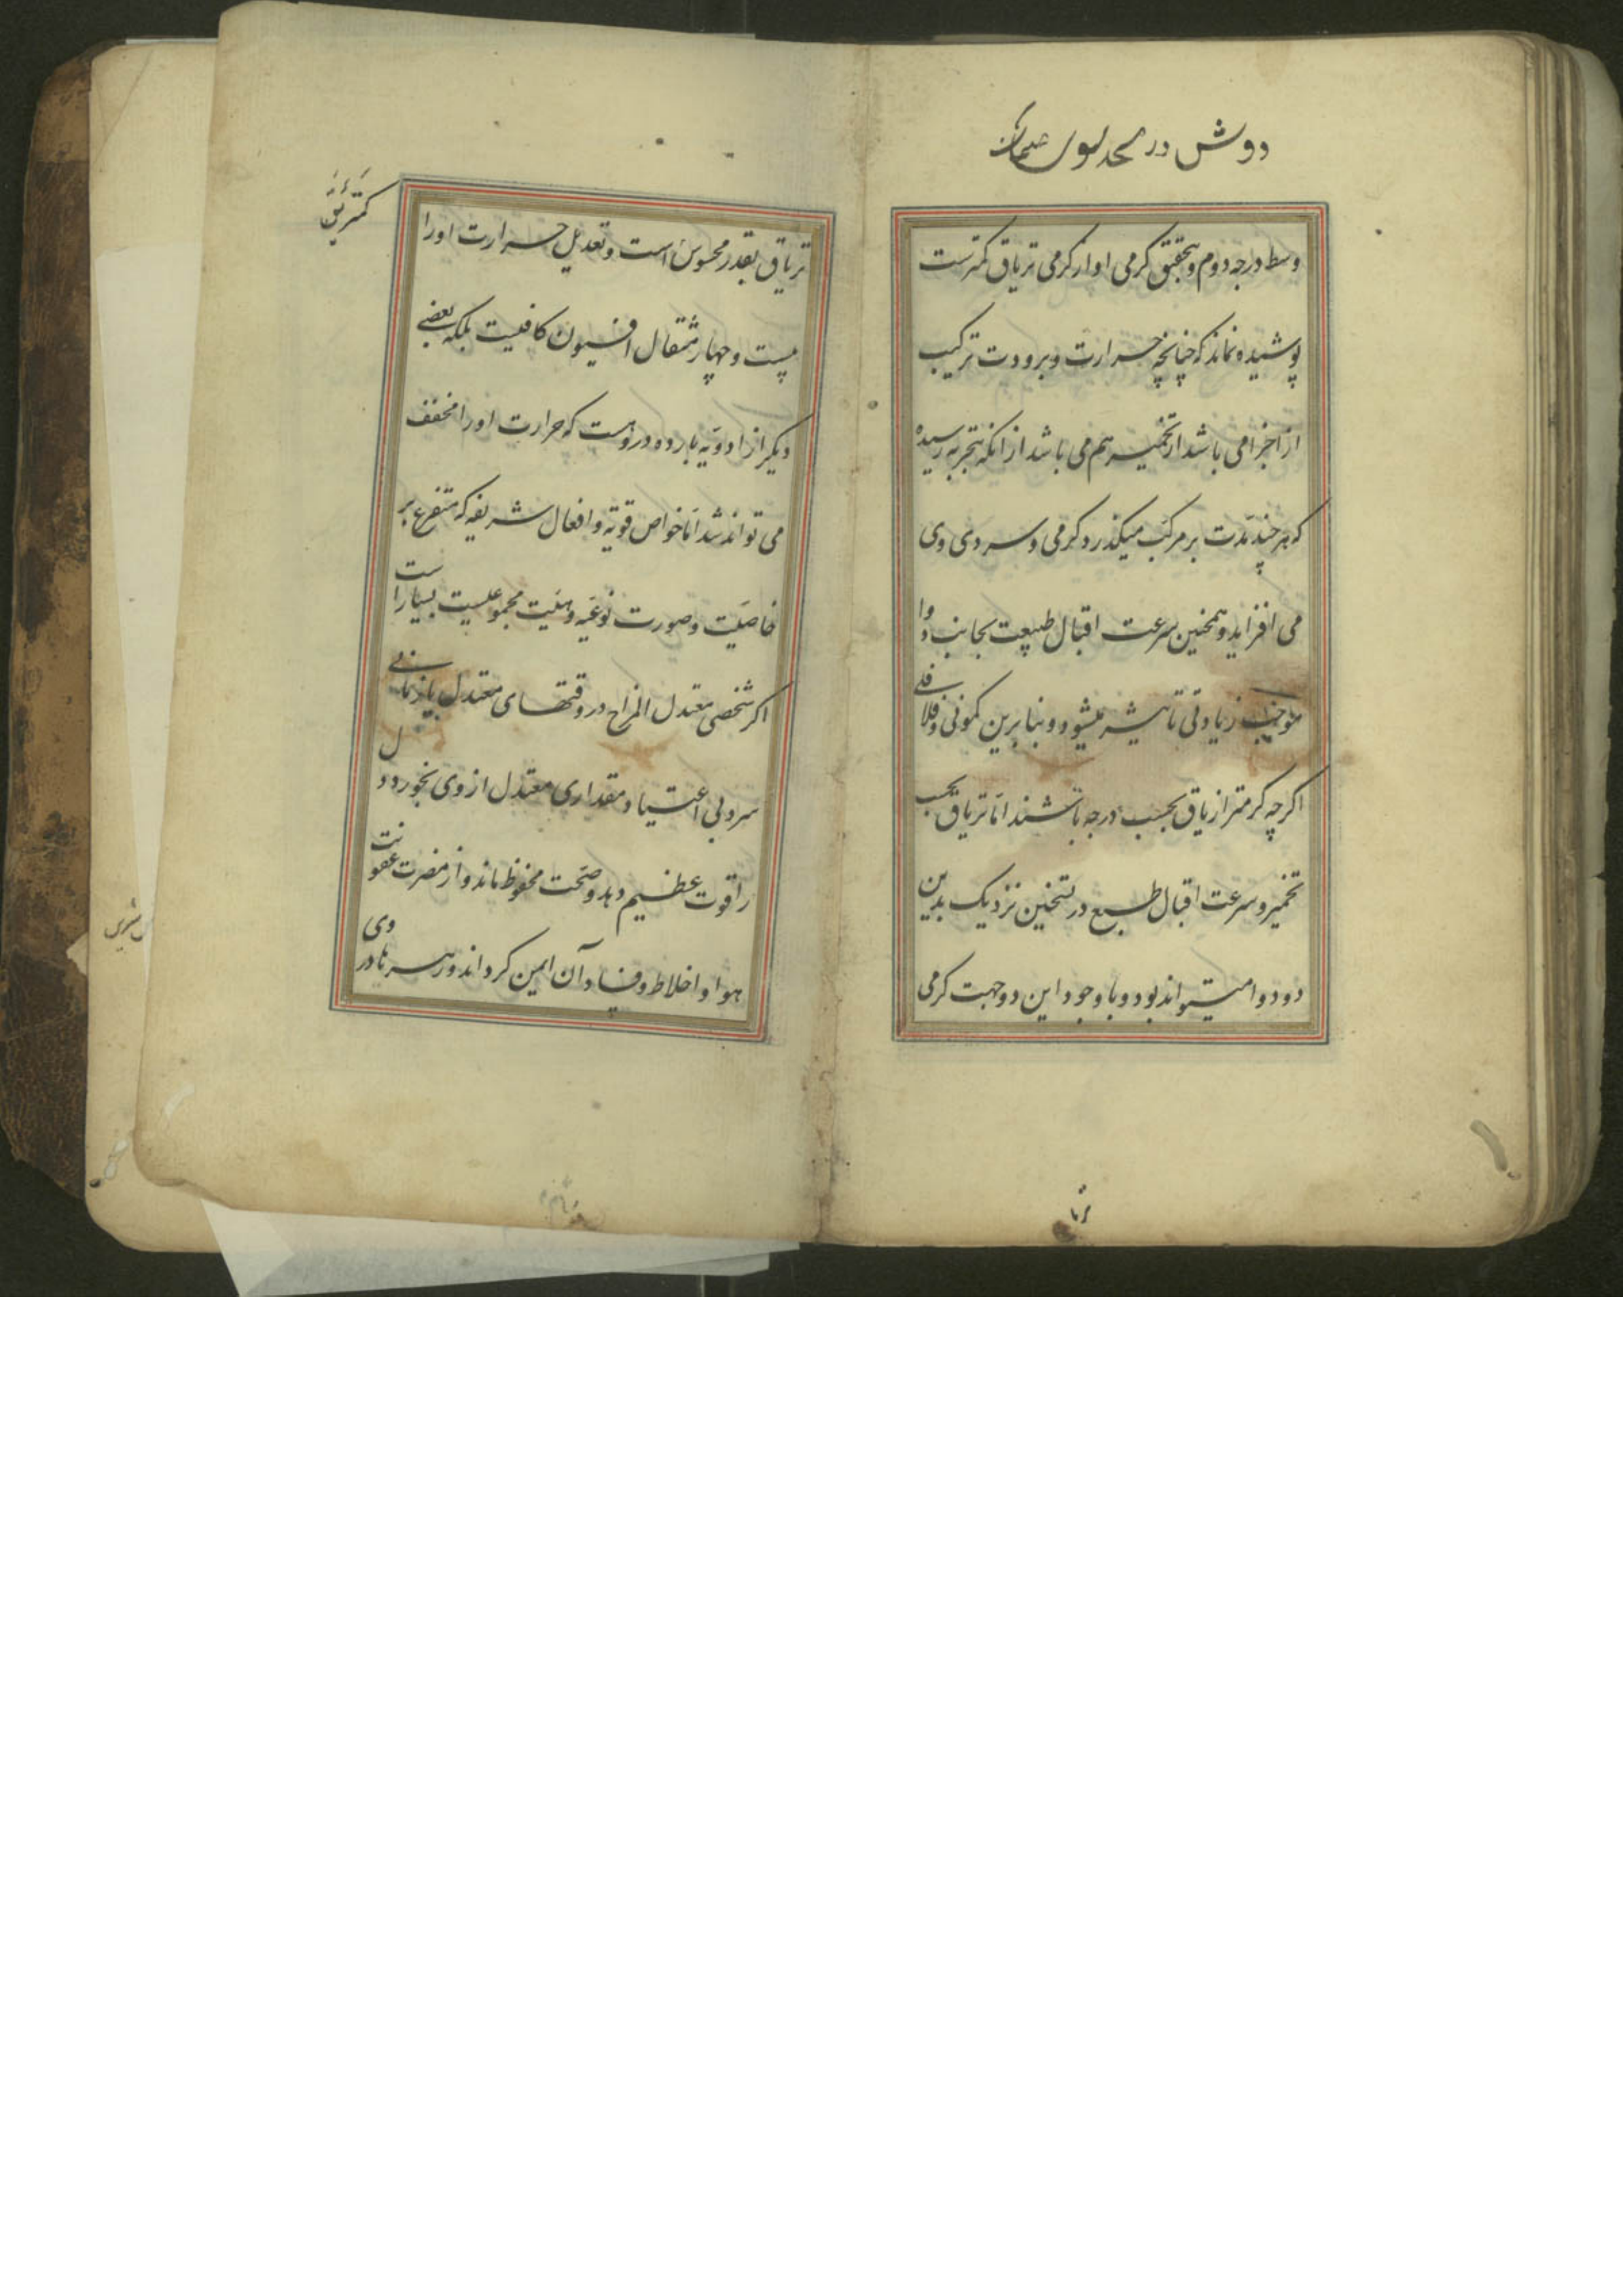 دوش در
وسط درجه دوم و بتحقیق گرمی او از گرمی تریاق کمترست
پوشیده نماند که چنانچه حرارت و برودت ترکیب
از اجزا می باشد از تخمیر هم می باشد از انکه بتجربه رسیده
که هر چند مدت بر مرکب میکذرد کرمی و سردی وی
می افزاید و همچنین سرعت اقبال طبیعت بجانب دوا
موجب زیادتی تاثیر میشود و بنابرین کمونی و فلافلی
اکرچه کرمتر از تریاق بحسب درجه باشند اما تریاق بحسب
تخمیر و سرعت اقبال طبع در تسخین نزدیک بدین
دو دوا میتواند بود و با وجود این دو جهت کرمی
تریاق بقدر محسوس است و تعدیل حرارت او را
بیست و چهار مثقال افیون کافیست بلکه بعضی
دیکر از ادویه بارده دروست که حرارت او را مخفف
می تواند شد اما خواص قویه و افعال شریفه که متفرع بر
خاصیت و صورت نوعیه و هئیت مجموعیست بسیار است
اکر شخصی معتدل المزاج در وقتهای معتدل یا زمانی
سرد بی اعتیاد مقداری معتدل از وی بخورد دل
را قوت عظیم دهد و صحت محفوظ ماند و از مضرت عفونت
هوا و اخلاط و فساد آن ایمن کرداند و زهرها در وی